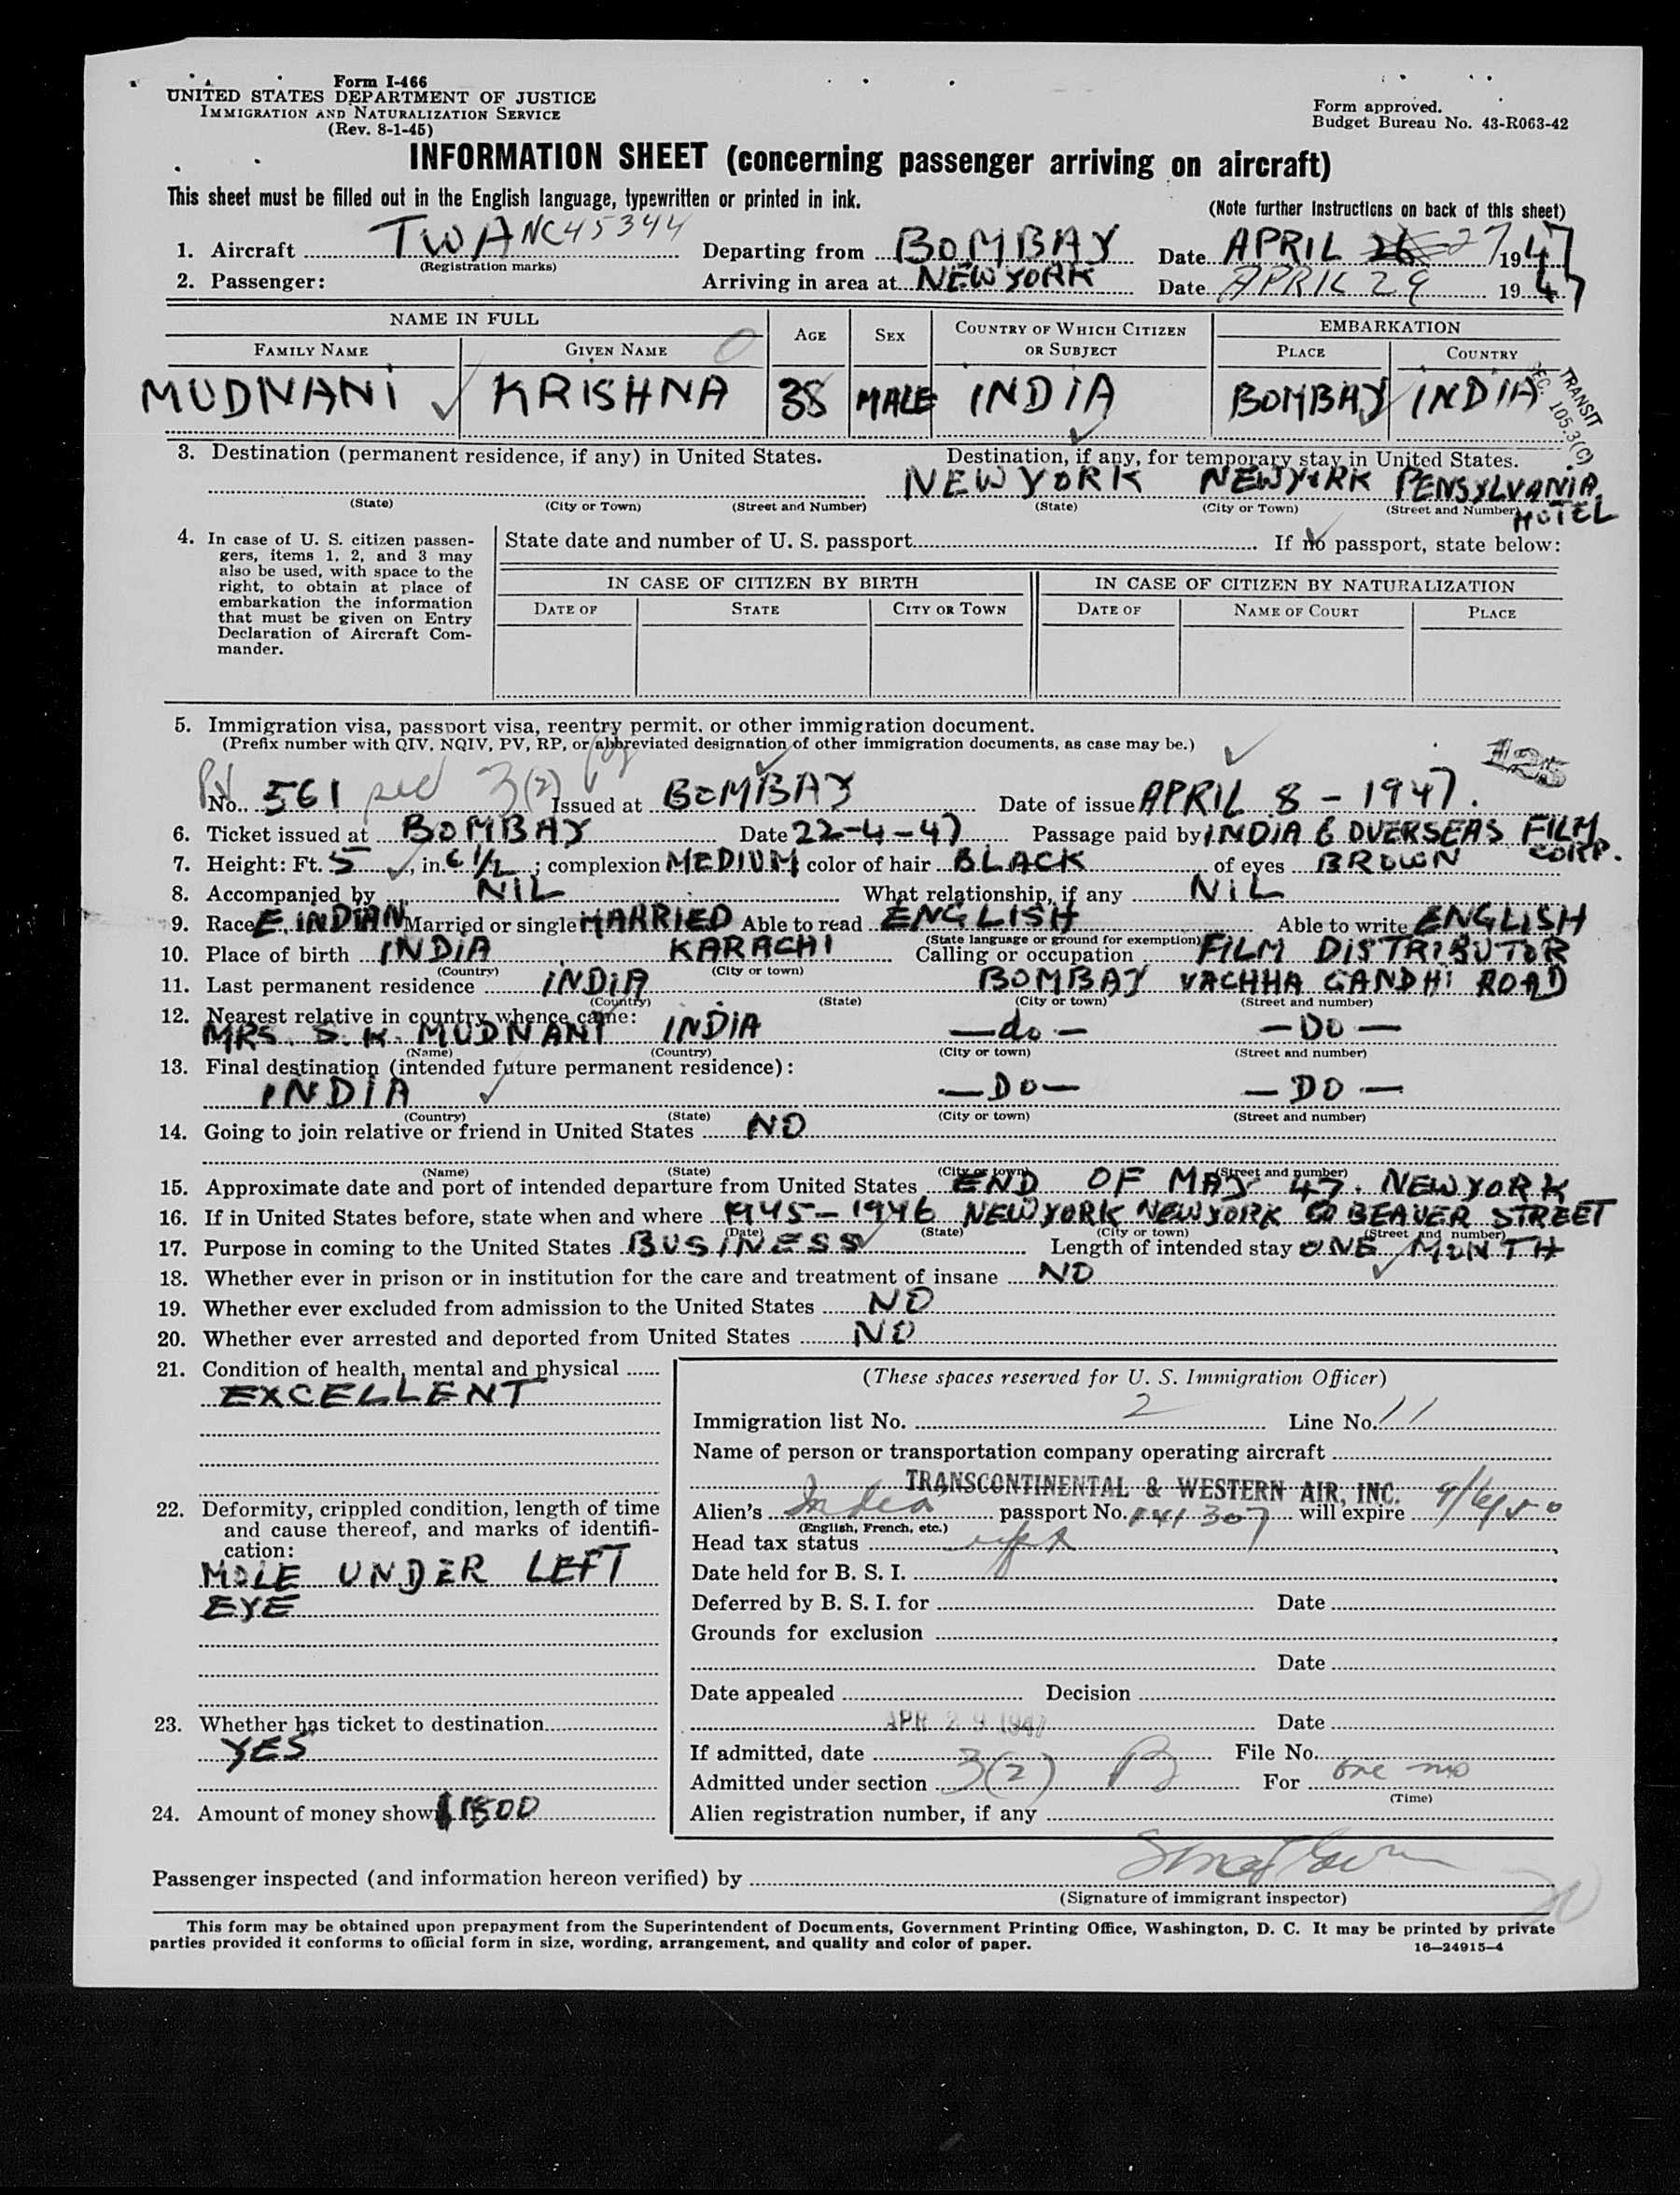 Form I-466
UNITED STATES DEPARTMENT OF JUSTICE
IMMIGRATION AND NATURALIZATION SERVICE
(Rev. 8-1-45)
Form approved.
Budget Bureau No. 43-R063-42
INFORMATION SHEET (concerning passenger arriving on aircraft)
This sheet must be filled out in the English language, typewritten or printed in ink.
(Note further instructions on back of this sheet)
1. Aircraft TWA NC45344 Departing from BOMBAY Date APRIL 27 1947
(Registration marks)
2. Passenger: Arriving in area at NEW YORK Date APRIL 29 1947
NAME IN FULL AGE SEX COUNTRY OF WHICH CITIZEN OR SUBJECT EMBARKATION
FAMILY NAME GIVEN NAME PLACE COUNTRY
MUDNANI KRISHNA 38 MALE INDIA BOMBAY INDIA
TRANSIT
SEC. 105.3(C)
3. Destination (permanent residence, if any) in United States. Destination, if any, for temporary stay in United States.
NEW YORK NEWYORK PENSYLVANIA HOTEL
(State) (City or Town) (Street and Number) (State) (City or Town) (Street and Number)
4. In case of U. S. citizen passen-
gers, items 1, 2, and 3 may
also be used, with space to the
right, to obtain at place of
embarkation the information
that must be given on Entry
Declaration of Aircraft Com-
mander.
State date and number of U. S. passport If no passport, state below:
IN CASE OF CITIZEN BY BIRTH IN CASE OF CITIZEN BY NATURALIZATION
DATE OF STATE CITY OR TOWN DATE OF NAME OF COURT PLACE
5. Immigration visa, passport visa, reentry permit, or other immigration document.
(Prefix number with QIV, NQIV, PV, RP, or abbreviated designation of other immigration documents, as case may be.)
125
PV No. 561 sec 3(2) Issued at BOMBAY Date of issue APRIL 8 - 1947.
6. Ticket issued at BOMBAY Date 22-4-47 Passage paid by INDIA & OVERSEAS FILM CORP.
7. Height: Ft. 5, in. 6 1/2; complexion MEDIUM color of hair BLACK of eyes BROWN
8. Accompanied by NIL What relationship, if any NIL
9. Race E. INDIAN Married or single MARRIED Able to read ENGLISH Able to write ENGLISH
(State language or ground for exemption)
10. Place of birth INDIA KARACHI Calling or occupation FILM DISTRIBUTOR
(Country) (City or town)
11. Last permanent residence INDIA BOMBAY VACHHA GANDHI ROAD
(Country) (State) (City or town) (Street and number)
12. Nearest relative in country whence came:
MRS. S. K. MUDNANI INDIA —do— —DO—
(Name) (Country) (City or town) (Street and number)
13. Final destination (intended future permanent residence):
INDIA —DO— —DO—
(Country) (State) (City or town) (Street and number)
14. Going to join relative or friend in United States NO
(Name) (State) (City or town) (Street and number)
15. Approximate date and port of intended departure from United States END OF MAY 47. NEWYORK
16. If in United States before, state when and where 1945-1946 NEWYORK NEWYORK 60 BEAVER STREET
(Date) (State) (City or town) (Street and number)
17. Purpose in coming to the United States BUSINESS Length of intended stay ONE MONTH
18. Whether ever in prison or in institution for the care and treatment of insane NO
19. Whether ever excluded from admission to the United States NO
20. Whether ever arrested and deported from United States NO
21. Condition of health, mental and physical
EXCELLENT
22. Deformity, crippled condition, length of time
and cause thereof, and marks of identifi-
cation:
MOLE UNDER LEFT
EYE
23. Whether has ticket to destination
YES
24. Amount of money shown $1500
(These spaces reserved for U. S. Immigration Officer)
Immigration list No. 2 Line No. 11
Name of person or transportation company operating aircraft
TRANSCONTINENTAL & WESTERN AIR, INC.
Alien's India passport No. 141307 will expire
(English, French, etc.)
Head tax status
Date held for B. S. I.
Deferred by B. S. I. for Date
Grounds for exclusion
Date
Date appealed Decision
APR 29 1947 Date
If admitted, date File No.
Admitted under section 3(2) B For one mo
(Time)
Alien registration number, if any
Passenger inspected (and information hereon verified) by
(Signature of immigrant inspector)
This form may be obtained upon prepayment from the Superintendent of Documents, Government Printing Office, Washington, D. C. It may be printed by private
parties provided it conforms to official form in size, wording, arrangement, and quality and color of paper.
16—24915-4